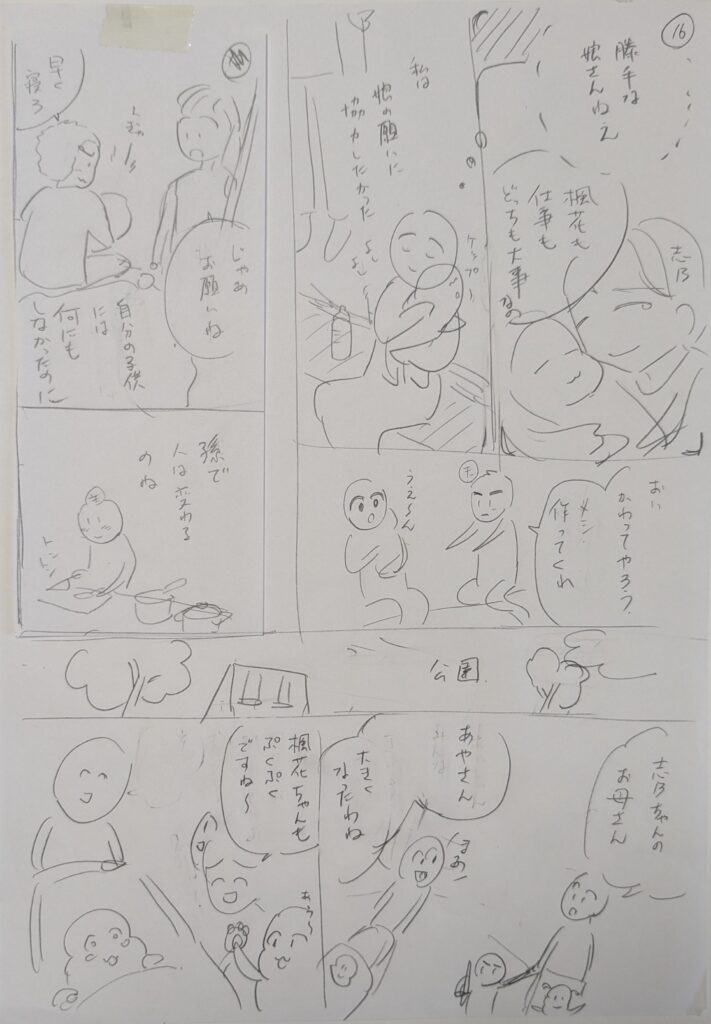 16
勝手な
娘さんねえ
志乃
楓花も
仕事も
どっちも大事なの
私は
娘の願いに
協力したかった
よし
よし
ケップ〜
早く
寝ろ
じゃあ
お願いね
自分の子供
には
何にも
しなかったのに
おい
かわってやろう
メシ
作ってくれ
うえ〜ん
孫で
人は変わる
のね
トン
トン
公園
志乃ちゃんの
お母さん
あやさん
大きく
なったわね
楓花ちゃんも
ぷくぷく
ですね〜